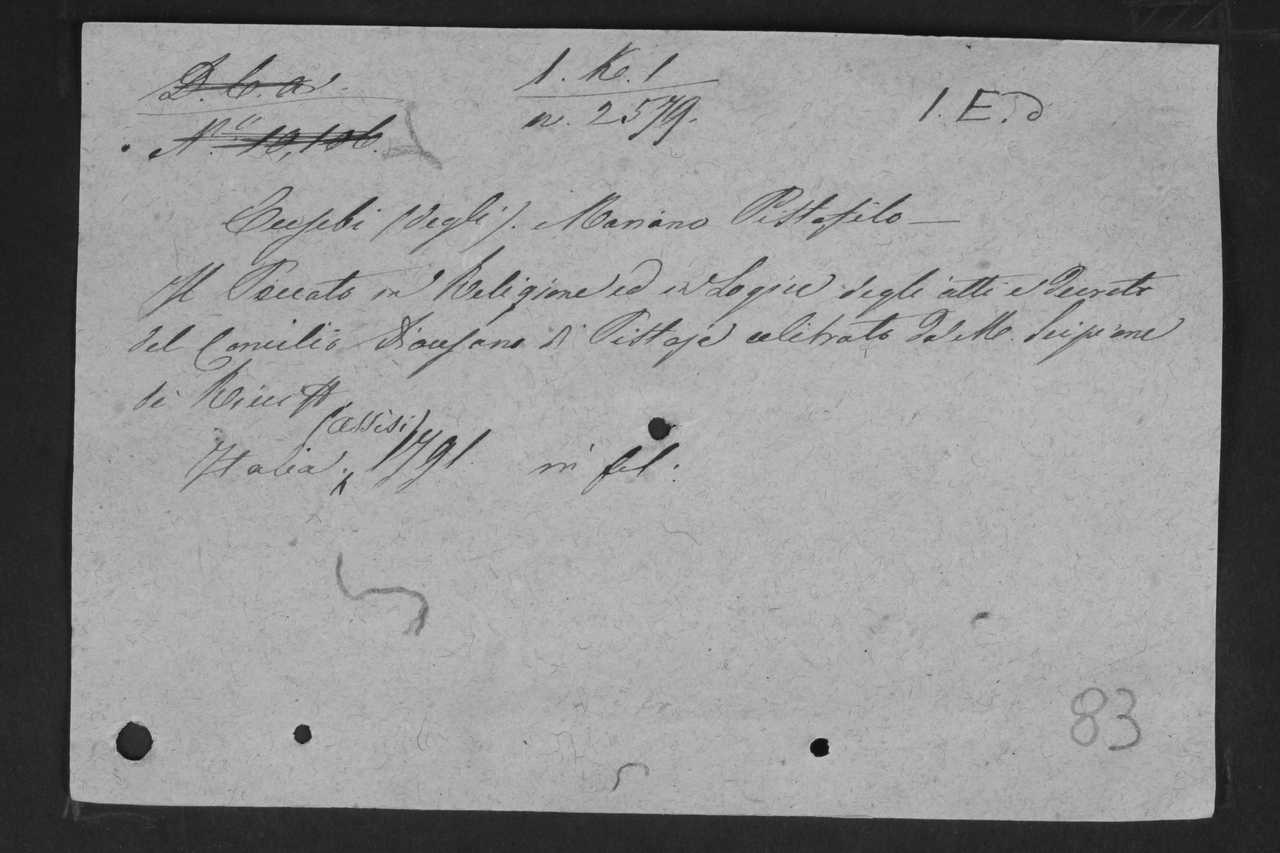 D. C. a.
N.º 10,106.
1. K. 1
n. 2579.
1. E. d
Eusebi (degli). Mariano Pistofilo —
Il Peccato in Religione ed in Logica degli atti e Decreti
del Concilio Diocesano di Pistoja celebrato da M. Scipione
de Ricci
(Assisi)
Italia. 1791 in fol.
83